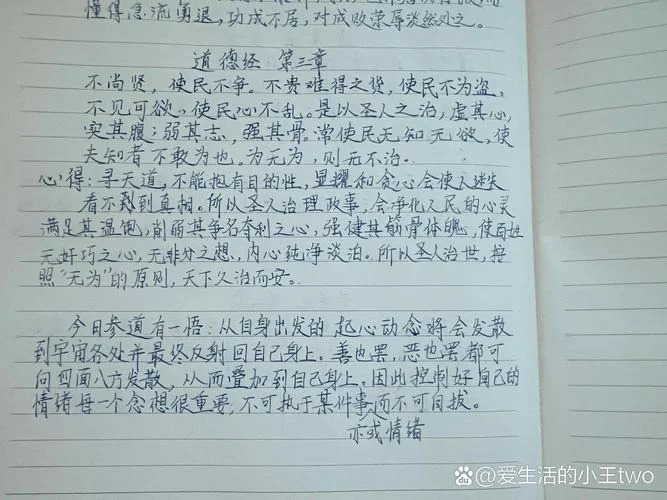 懂得急流勇退，功成不居，对成败荣辱淡然处之。
道德经 第三章
不尚贤，使民不争。不贵难得之货，使民不为盗。
不见可欲，使民心不乱。是以圣人之治，虚其心，
实其腹；弱其志，强其骨。常使民无知无欲，使
夫知者不敢为也。为无为，则无不治。
心得：寻天道，不能抱有目的性，显擢和贪心会使人迷失
看不到到真相。所以圣人治理政事，会净化人民的心灵
满足其温饱，削弱其争名夺利之心，强健其筋骨体魄，使百姓
无奸巧之心，无非分之想，内心纯净淡泊。所以圣人治世，按
照“无为”的原则，天下久治而安。
今日参道有一悟：从自身出发的起心动念将会发散
到宇宙各处并最终反射回自己身上。善也罢，恶也罢都可
向四面八方发散，从而叠加到自己身上。因此控制好自己的
情绪每一个念想很重要，不可执于某件事人而不可自拔。
亦或情绪
@爱生活的小王two